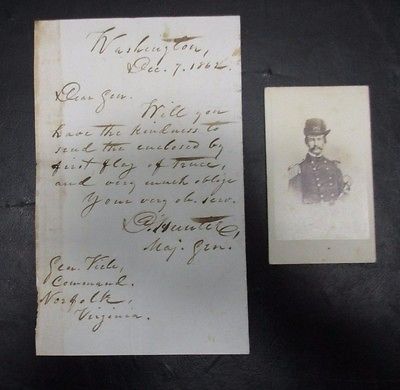 Washington,
Dec. 7. 1862.
Dear Gen.
Will you
have the kindness to
send the enclosed by
first flag of truce,
and very much oblige
Your very ob. serv.
D. Hunter,
Maj. Gen.
Gen. Viele,
Command.
Norfolk,
Virginia.